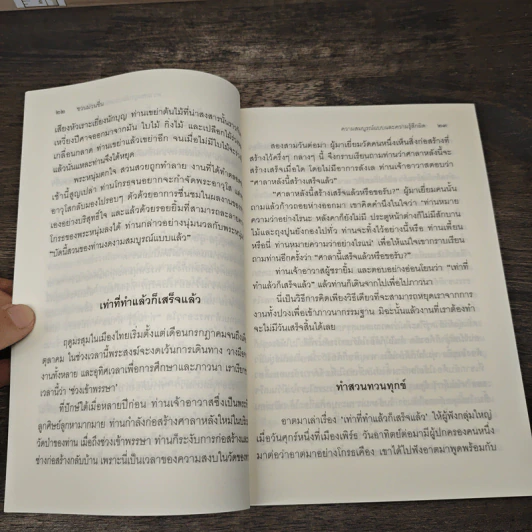 ๒๒ ชวนม่วนชื่น
เสียงหัวเราะเยี่ยงนักบุญ ท่านเขย่าต้นไม้ที่น่าสงสารนั้นราวกับ
เหวี่ยงปีศาจออกมาจากมัน ใบไม้ กิ่งไม้ และเปลือกไม้
เกลื่อนกลาด ท่านเขย่าแล้วเขย่าอีก จนเมื่อไม่มีใบไม้
แล้วนั่นแหละท่านจึงได้หยุด
พระหนุ่มตกใจ สวนสวยถูกทำลาย งานที่ได้ทำตลอด
เช้านี้สูญเปล่า ท่านโกรธจนอยากจะกำจัดพระอาวุโส
อาวุโสกลับมองไปรอบๆ ด้วยอาการชื่นชมในผลงานของ
เองอย่างบริสุทธิ์ใจ และแล้วด้วยรอยยิ้มที่สามารถละลาย
โกรธของพระหนุ่มลงได้ ท่านกล่าวอย่างนุ่มนวลกับพระหนุ่ม
“บัดนี้สวนของท่านงดงามสมบูรณ์แบบแล้ว”
เท่าที่ทำแล้วก็เสร็จแล้ว
ฤดูมรสุมในเมืองไทยเริ่มตั้งแต่เดือนกรกฎาคมจนถึง
ตุลาคม ในช่วงเวลานี้พระสงฆ์จะงดเว้นการเดินทาง วางมือ
งานทั้งหลาย และอุทิศเวลาเพื่อการศึกษาและภาวนา เราเรียก
เวลานี้ว่า ‘ช่วงเข้าพรรษา’
ที่ปักษ์ใต้เมื่อหลายปีก่อน ท่านเจ้าอาวาสซึ่งเป็นพระ
ลูกศิษย์ลูกหามากมาย ท่านกำลังก่อสร้างศาลาหลังใหม่ใน
วัดป่าของท่าน เมื่อถึงช่วงเข้าพรรษา ท่านก็ระงับการก่อสร้างและ
ช่างก่อสร้างกลับบ้าน เพราะนี่เป็นเวลาของความสงบในวัดของ
ความสมบูรณ์แบบและความรู้สึกผิด ๒๓
สองสามวันต่อมา ผู้มาเยี่ยมวัดคนหนึ่งเห็นสิ่งก่อสร้างที่
สร้างไว้ครึ่งๆ กลางๆ นี้ จึงกราบเรียนถามท่านว่าศาลาหลังนี้จะ
สร้างเสร็จเมื่อใด โดยไม่มีอาการลังเล ท่านเจ้าอาวาสตอบว่า
“ศาลาหลังนี้สร้างเสร็จแล้ว”
“ศาลาหลังนี้สร้างเสร็จแล้วหรือขอรับ?” ผู้มาเยี่ยมคนนั้น
ถามแล้วก้าวถอยห่างออกมา เขาคิดคำนึงในใจว่า “ท่านหมาย
ความว่าอย่างไรนะ หลังคาก็ยังไม่มี ประตูหน้าต่างก็ไม่มีสักบาน
ไม้และถุงปูนยังกองไปทั่ว ท่านจะทิ้งไว้อย่างนี้หรือ ท่านเพี้ยน
หรือนี่ ท่านหมายความว่าอย่างไรแน่” เพื่อให้แน่ใจเขากราบเรียน
ถามท่านอีกครั้งว่า “ศาลานี้เสร็จแล้วหรือขอรับ?”
ท่านเจ้าอาวาสผู้ชรายิ้ม และตอบอย่างอ่อนโยนว่า “เท่าที่
ทำแล้วก็เสร็จแล้ว” แล้วท่านก็เดินจากไปเพื่อไปภาวนา
นี่เป็นวิธีการคิดเพียงวิธีเดียวที่จะสามารถหยุดเราจากการ
งานทั้งปวงเพื่อเข้าภาวนากรรมฐาน มิฉะนั้นแล้วงานที่เราต้องทำ
จะไม่มีวันเสร็จสิ้นได้เลย
ทำสวนทวนทุกข์
อาตมาเล่าเรื่อง ‘เท่าที่ทำแล้วก็เสร็จแล้ว’ ให้ผู้ฟังกลุ่มใหญ่
เมื่อวันศุกร์หนึ่งที่เมืองเพิร์ธ วันอาทิตย์ต่อมามีผู้ปกครองคนหนึ่ง
มาต่อว่าอาตมาอย่างโกรธเคือง เขาได้ไปฟังอาตมาพูดพร้อมกับ